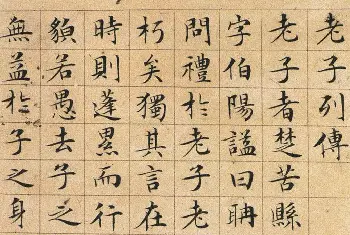 老子列傳
老子者楚苦縣
字伯陽謚曰聃
問禮於老子老
朽矣獨其言在
時則蓬累而行
貌若愚去子之
無益於子之身